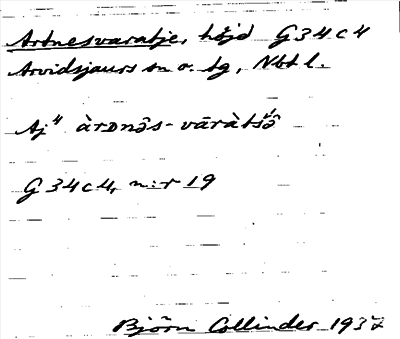 Artnesvaratje, höjd G34c4
Arvidsjaurs sn o. tg, Nbt l.
Aj" àrᴅnə̂s-vāràtsə̂
G34c4, n:r 19
Björn Collinder 1937